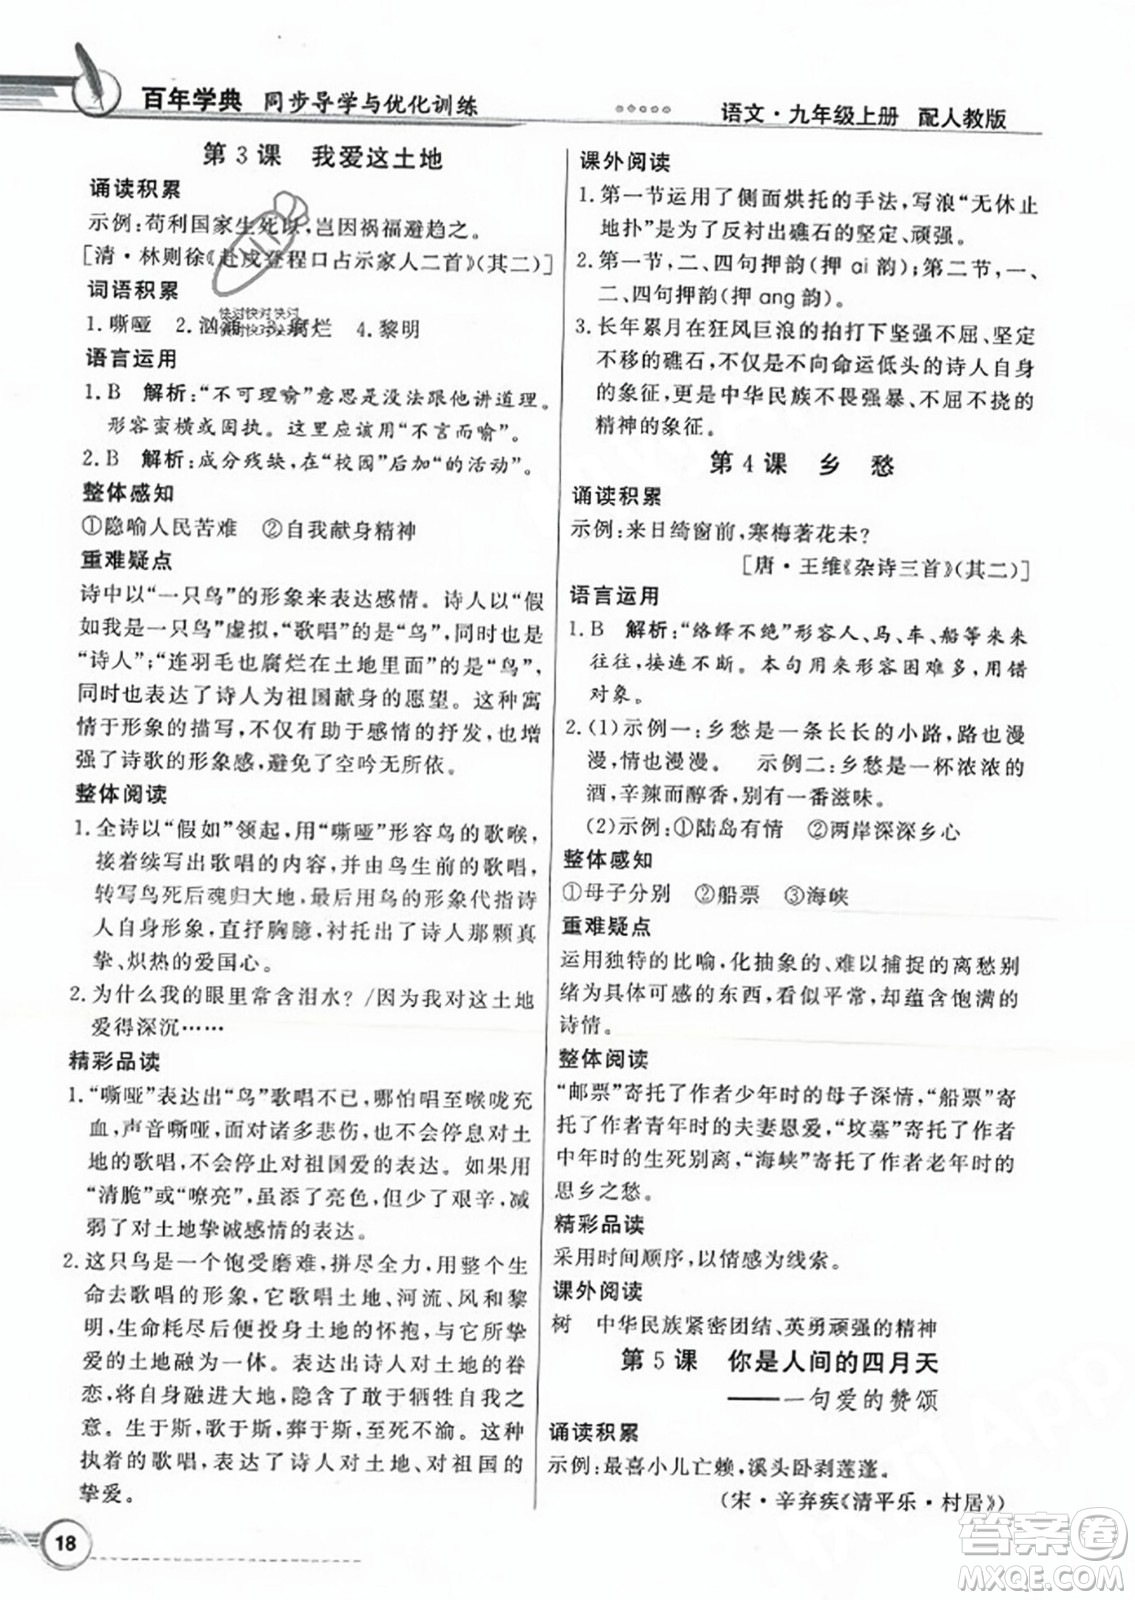 百年学典 同步导学与优化训练
语文·九年级上册 配人教版
第3课 我爱这土地
诵读积累
示例:苟利国家生死以,岂因祸福避趋之。
[清·林则徐《赴戍登程口占示家人二首》(其二)]
词语积累
1. 嘶哑 2. 汹涌 3. 腐烂 4. 黎明
快对快对快对
快对快对快对
语言运用
1. B 解析:“不可理喻”意思是没法跟他讲道理。
形容蛮横或固执。这里应该用“不言而喻”。
2. B 解析:成分残缺,在“校园”后加“的活动”。
整体感知
①隐喻人民苦难 ②自我献身精神
重难疑点
诗中以“一只鸟”的形象来表达感情。诗人以“假
如我是一只鸟”虚拟,“歌唱”的是“鸟”,同时也是
“诗人”;“连羽毛也腐烂在土地里面”的是“鸟”,
同时也表达了诗人为祖国献身的愿望。这种寓
情于形象的描写,不仅有助于感情的抒发,也增
强了诗歌的形象感,避免了空吟无所依。
整体阅读
1. 全诗以“假如”领起,用“嘶哑”形容鸟的歌喉,
接着续写出歌唱的内容,并由鸟生前的歌唱,
转写鸟死后魂归大地,最后用鸟的形象代指诗
人自身形象,直抒胸臆,衬托出了诗人那颗真
挚、炽热的爱国心。
2. 为什么我的眼里常含泪水? /因为我对这土地
爱得深沉……
精彩品读
1. “嘶哑”表达出“鸟”歌唱不已,哪怕唱至喉咙充
血,声音嘶哑,面对诸多悲伤,也不会停息对土
地的歌唱,不绝对祖国爱的表达。如果用
“清脆”或“嘹亮”,虽添了亮色,但少了艰辛,减
弱了对土地挚诚感情的表达。
2. 这只鸟是一个饱受磨难,拼尽全力用整个生
命去歌唱的形象,它歌唱土地、河流、风和黎
明,生命耗尽后便投身土地的怀抱,与它所挚
爱的土地融为一体。表达出诗人对土地的眷
恋,将自身融入大地,隐含献身之意。诗人对
土地的情感,突出表现在敢于牺牲自我的奉献
上。生于斯,歌于斯,葬于斯,至死不渝。诗人
借鸟的歌唱,表达出自身对土地、对祖国的
挚爱。
课外阅读
1. 第一节运用了侧面烘托的手法,写浪“无休止
地扑”是为了反衬出礁石的坚定、顽强。
2. 第一节,二、四句押韵(押 ai 韵);第二节,一、
二、四句押韵(押 ang 韵)。
3. 长年累月在狂风巨浪的拍打下坚强不屈、坚定
不移的礁石,不仅是不向命运低头的诗人自身
的象征,更是中华民族不畏强暴、不屈不挠的
精神的象征。
第4课 乡 愁
诵读积累
示例:来日绮窗前,寒梅著花未?
[唐·王维《杂诗三首》(其二)]
语言运用
1. B 解析:“络绎不绝”形容人、马、车、船等来来
往往,接连不断。本句用来形容困难多,用错
对象。
2. (1)示例一:乡愁是一条长长的小路,路也漫
漫,情也漫漫。 示例二:乡愁是一杯浓浓的
酒,辛辣而醇香,别有一番滋味。
(2)示例:①陆岛有情 ②两岸深深乡心
整体感知
①母子分别 ②船票 ③海峡
重难疑点
运用独特的比喻,化抽象的、难以捕捉的离愁别
绪为具体可感的东西,看似平常,却蕴含饱满的
诗情。
整体阅读
“邮票”寄托了作者少年时的母子深情,“船票”寄
托了作者青年时的夫妻恩爱,“坟墓”寄托了作者
中年时的生死别离,“海峡”寄托了作者老年时的
思乡之愁。
精彩品读
采用时间顺序,以情感为线索。
课外阅读
树 中华民族紧密团结、英勇顽强的精神
第5课 你是人间的四月天
——一句爱的赞颂
诵读积累
示例:最喜小儿亡赖,溪头卧剥莲蓬。
(宋·辛弃疾《清平乐·村居》)
18
答案圈
MXQE.COM